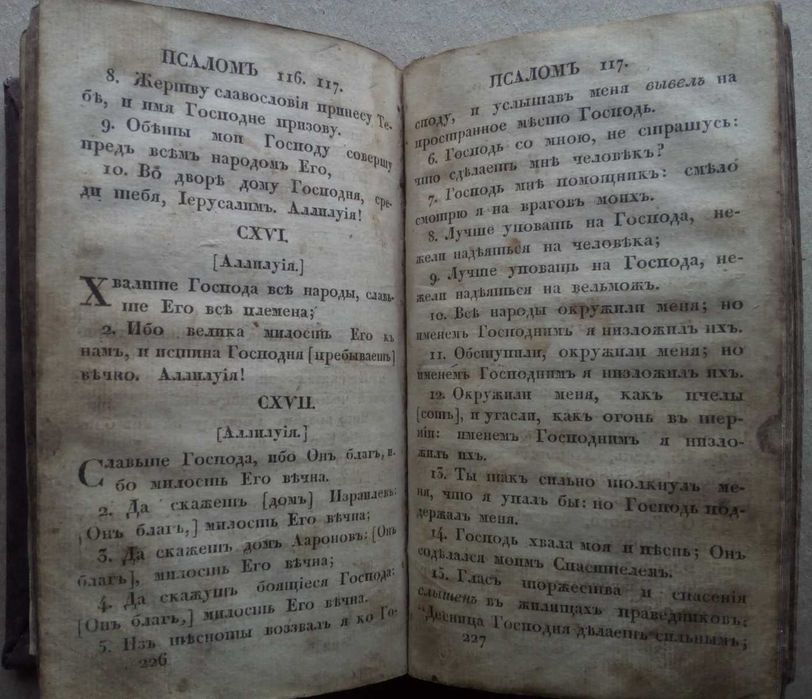 ПСАЛОМЪ 116. 117.
8. Жертву славословія принесу Те-
бѣ, и имя Господне призову.
9. Обѣты мои Господу совершу
предъ всѣмъ народомъ Его,
10. Во дворѣ дому Господня, сре-
ди тебя, Іерусалимъ. Аллилуія!
CXVI.
[Аллилуія.]
Хвалите Господа всѣ народы, славь-
те Его всѣ племена;
2. Ибо велика милость Его къ
намъ, и истина Господня [пребываетъ]
вѣчно. Аллилуія!
CXVII.
[Аллилуія.]
Славьте Господа, ибо Онъ благъ, и-
бо милость Его вѣчна.
2. Да скажетъ [домъ] Израилевъ:
[Онъ благъ,] милость Его вѣчна;
3. Да скажетъ домъ Аароновъ: [Онъ
благъ], милость Его вѣчна;
4. Да скажутъ боящіеся Господа:
[Онъ благъ,] милость Его вѣчна.
5. Изъ тѣсноты воззвалъ я ко Го-
226
ПСАЛОМЪ 117.
споду, и услышавъ меня вывелъ на
пространное мѣсто Господь.
6. Господь со мною, не страшусь:
что сдѣлаетъ мнѣ человѣкъ?
7. Господь мнѣ помощникъ: смѣло
смотрю я на враговъ моихъ.
8. Лучше уповать на Господа, не-
жели надѣяться на человѣка;
9. Лучше уповать на Господа, не-
жели надѣяться на вельможъ.
10. Всѣ народы окружили меня; но
именемъ Господнимъ я низложилъ ихъ.
11. Обступили, окружили меня; но
именемъ Господнимъ я низложилъ ихъ.
12. Окружили меня, какъ пчелы
[сотъ], и угасли, какъ огонь въ тер-
ніи: именемъ Господнимъ я низло-
жилъ ихъ.
13. Ты такъ сильно толкнулъ ме-
ня, что я упалъ бы: но Господь под-
держалъ меня.
14. Господь хвала моя и пѣснь; Онъ
содѣлался моимъ Спасителемъ.
15. Гласъ торжества и спасенія
слышенъ въ жилищахъ праведниковъ:
"Десница Господня дѣлаетъ сильнымъ;
227